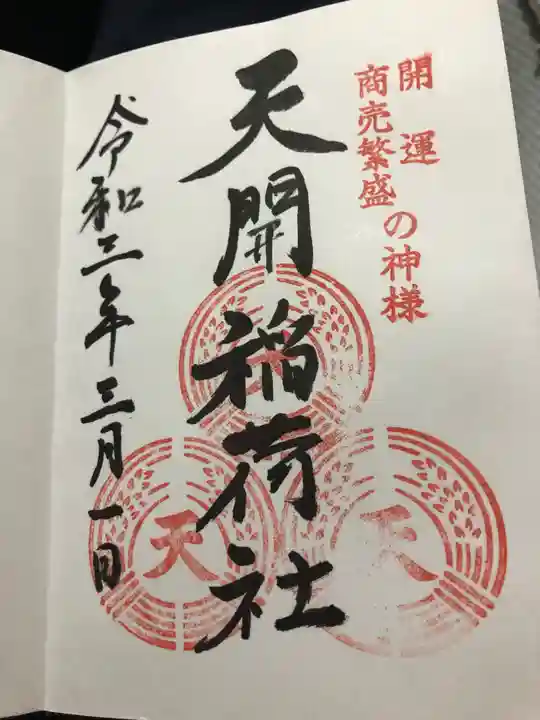 開運
商売繁盛
の神様
天開稲荷社
令和三年三月一日
天
天